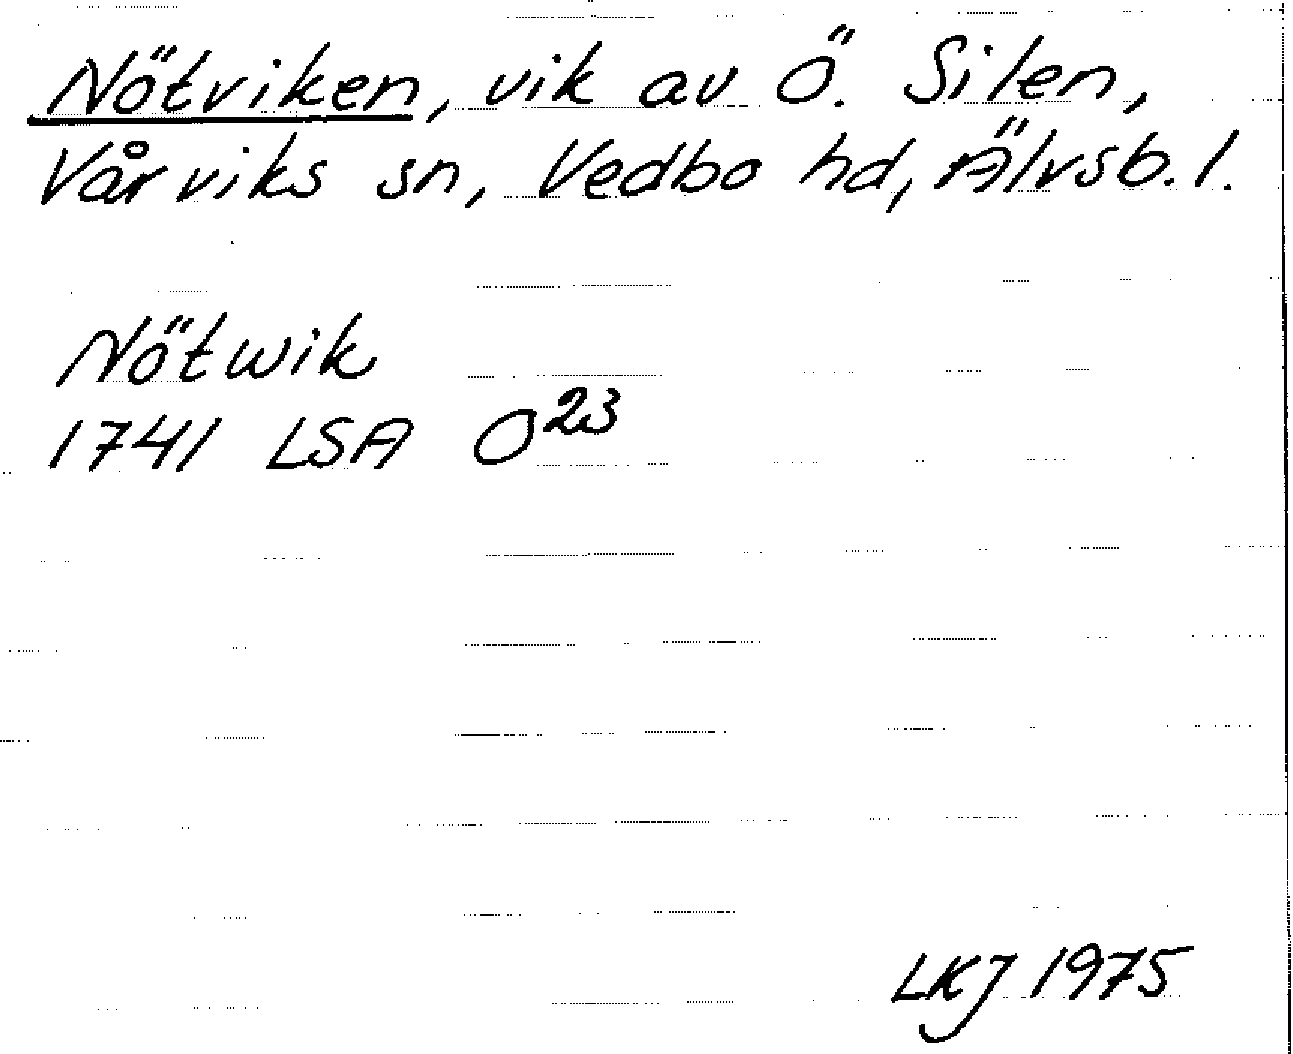 Nötviken, vik av Ö. Silen,
Vårviks sn, Vedbo hd, Älvsb. l.
Nötwik
1741 LSA O23
LKJ 1975